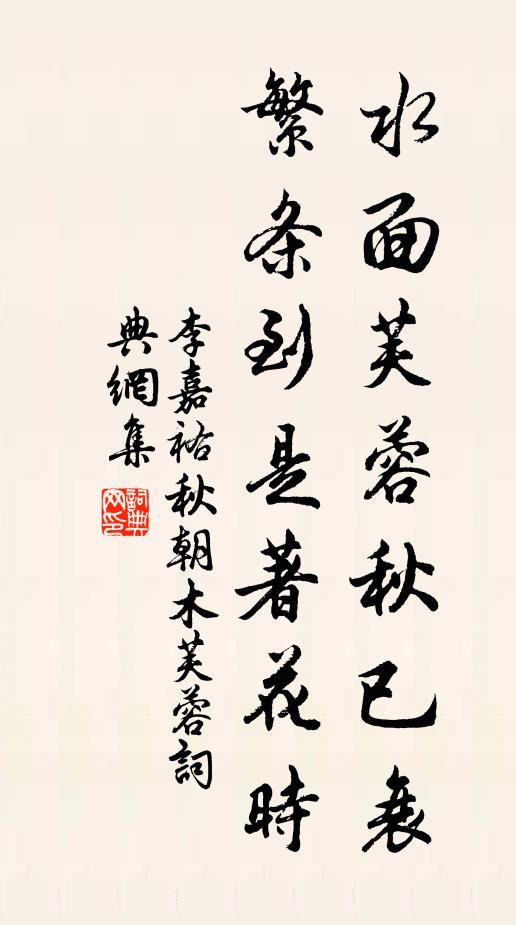 水面芙蓉秋已衰
繁条到是著花時
李嘉祐秋朝木芙蓉詞
典網集
詞典
网印